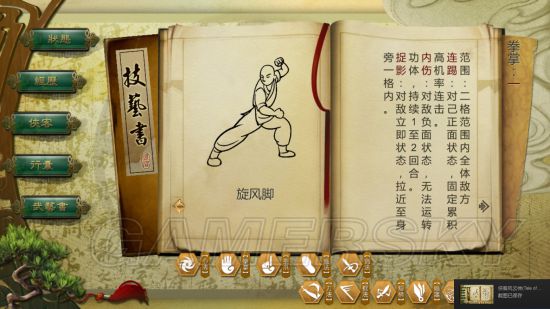 狀態
經歷
俠客
行囊
武藝書
技藝書
旋风脚
拳掌：一
范围：二格范围内全体敌方
连踢：对己正面状态，固定累积
高机率连击。
内伤：对敌负面状态，无法运转
功体，持续1至2回合。
捉影：对敌立即状态，拉近至身
旁一格内。
GAMERSKY
侠客风云传(Tale of...
截图已保存